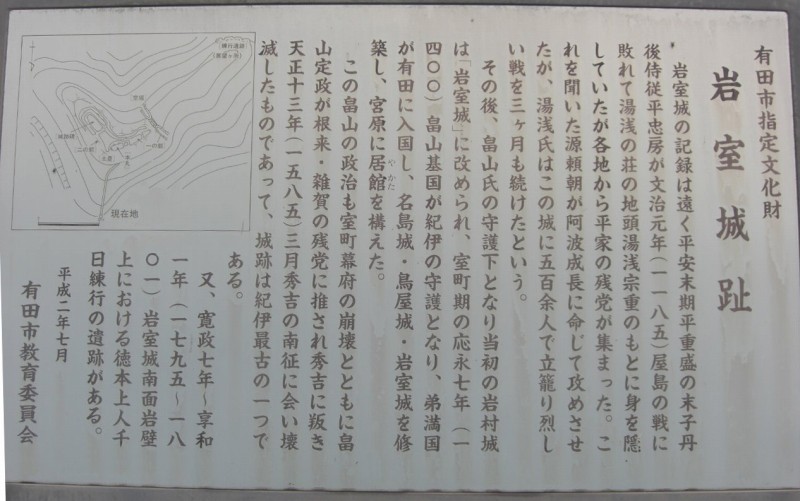 有田市指定文化財
岩室城趾
岩室城の記録は遠く平安末期平重盛の末子丹
後侍従平忠房が文治元年（一一八五）屋島の戦に
敗れて湯浅の荘の地頭湯浅宗重のもとに身を隠
していたが各地から平家の残党が集まった。こ
れを聞いた源頼朝が阿波成長に命じて攻めさせ
たが、湯浅氏はこの城に五百余人で立籠り烈し
い戦を三ヶ月も続けたという。
その後、畠山氏の守護下となり当初の岩村城
は「岩室城」に改められ、室町期の応永七年（一
四〇〇）畠山基国が紀伊の守護となり、弟満国
が有田に入国し、名島城・鳥屋城・岩室城を修
築し、宮原に居館を構えた。
やかた
この畠山の政治も室町幕府の崩壊とともに畠
山定政が根来・雑賀の残党に推され秀吉に叛き
天正十三年（一五八五）三月秀吉の南征に会い壊
滅したものであって、城跡は紀伊最古の一つで
ある。
又、寛政七年～享和
一年（一七九五～一八
〇一）岩室城南面岩壁
上における徳本上人千
日練行の遺跡がある。
平成二年七月
有田市教育委員会
現在地